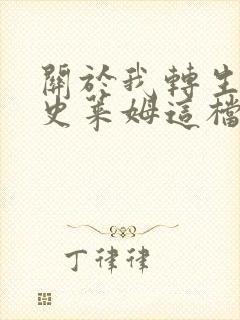 關於我轉生
史萊姆這檔
丁律律